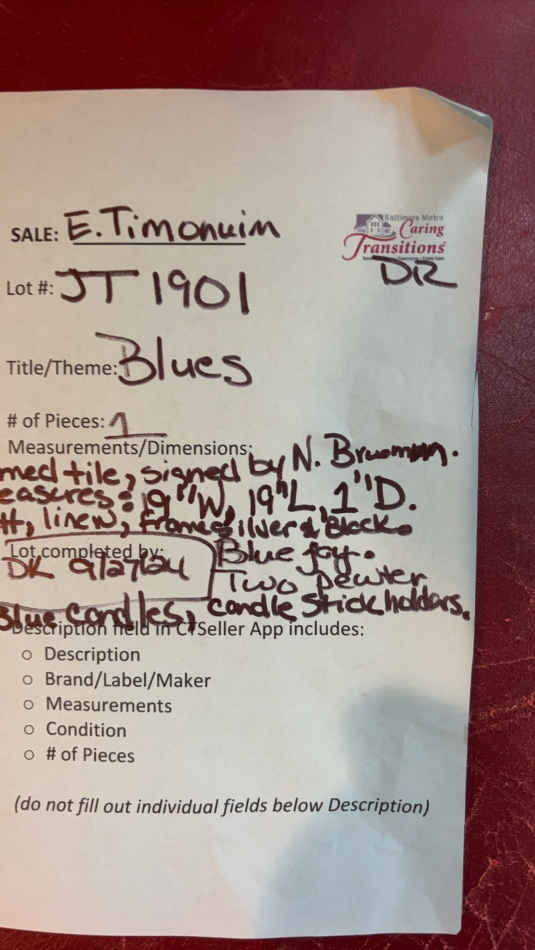 SALE: E. Timonuim
Baltimore Metro
Caring
Transitions
DR
Lot #: JT 1901
Title/Theme: Blues
# of Pieces: 1
Measurements/Dimensions:
med tile, signed by N.
easures: 19"W, 19"L, 1"D.
tt, linen, frame silver & Black.
Lot completed by:
DK 9/27/24
Blue Jay.
Two Pewter
Blue candles, candle stick holders.
Description field in CTSeller App includes:
○ Description
○ Brand/Label/Maker
○ Measurements
○ Condition
○ # of Pieces
(do not fill out individual fields below Description)